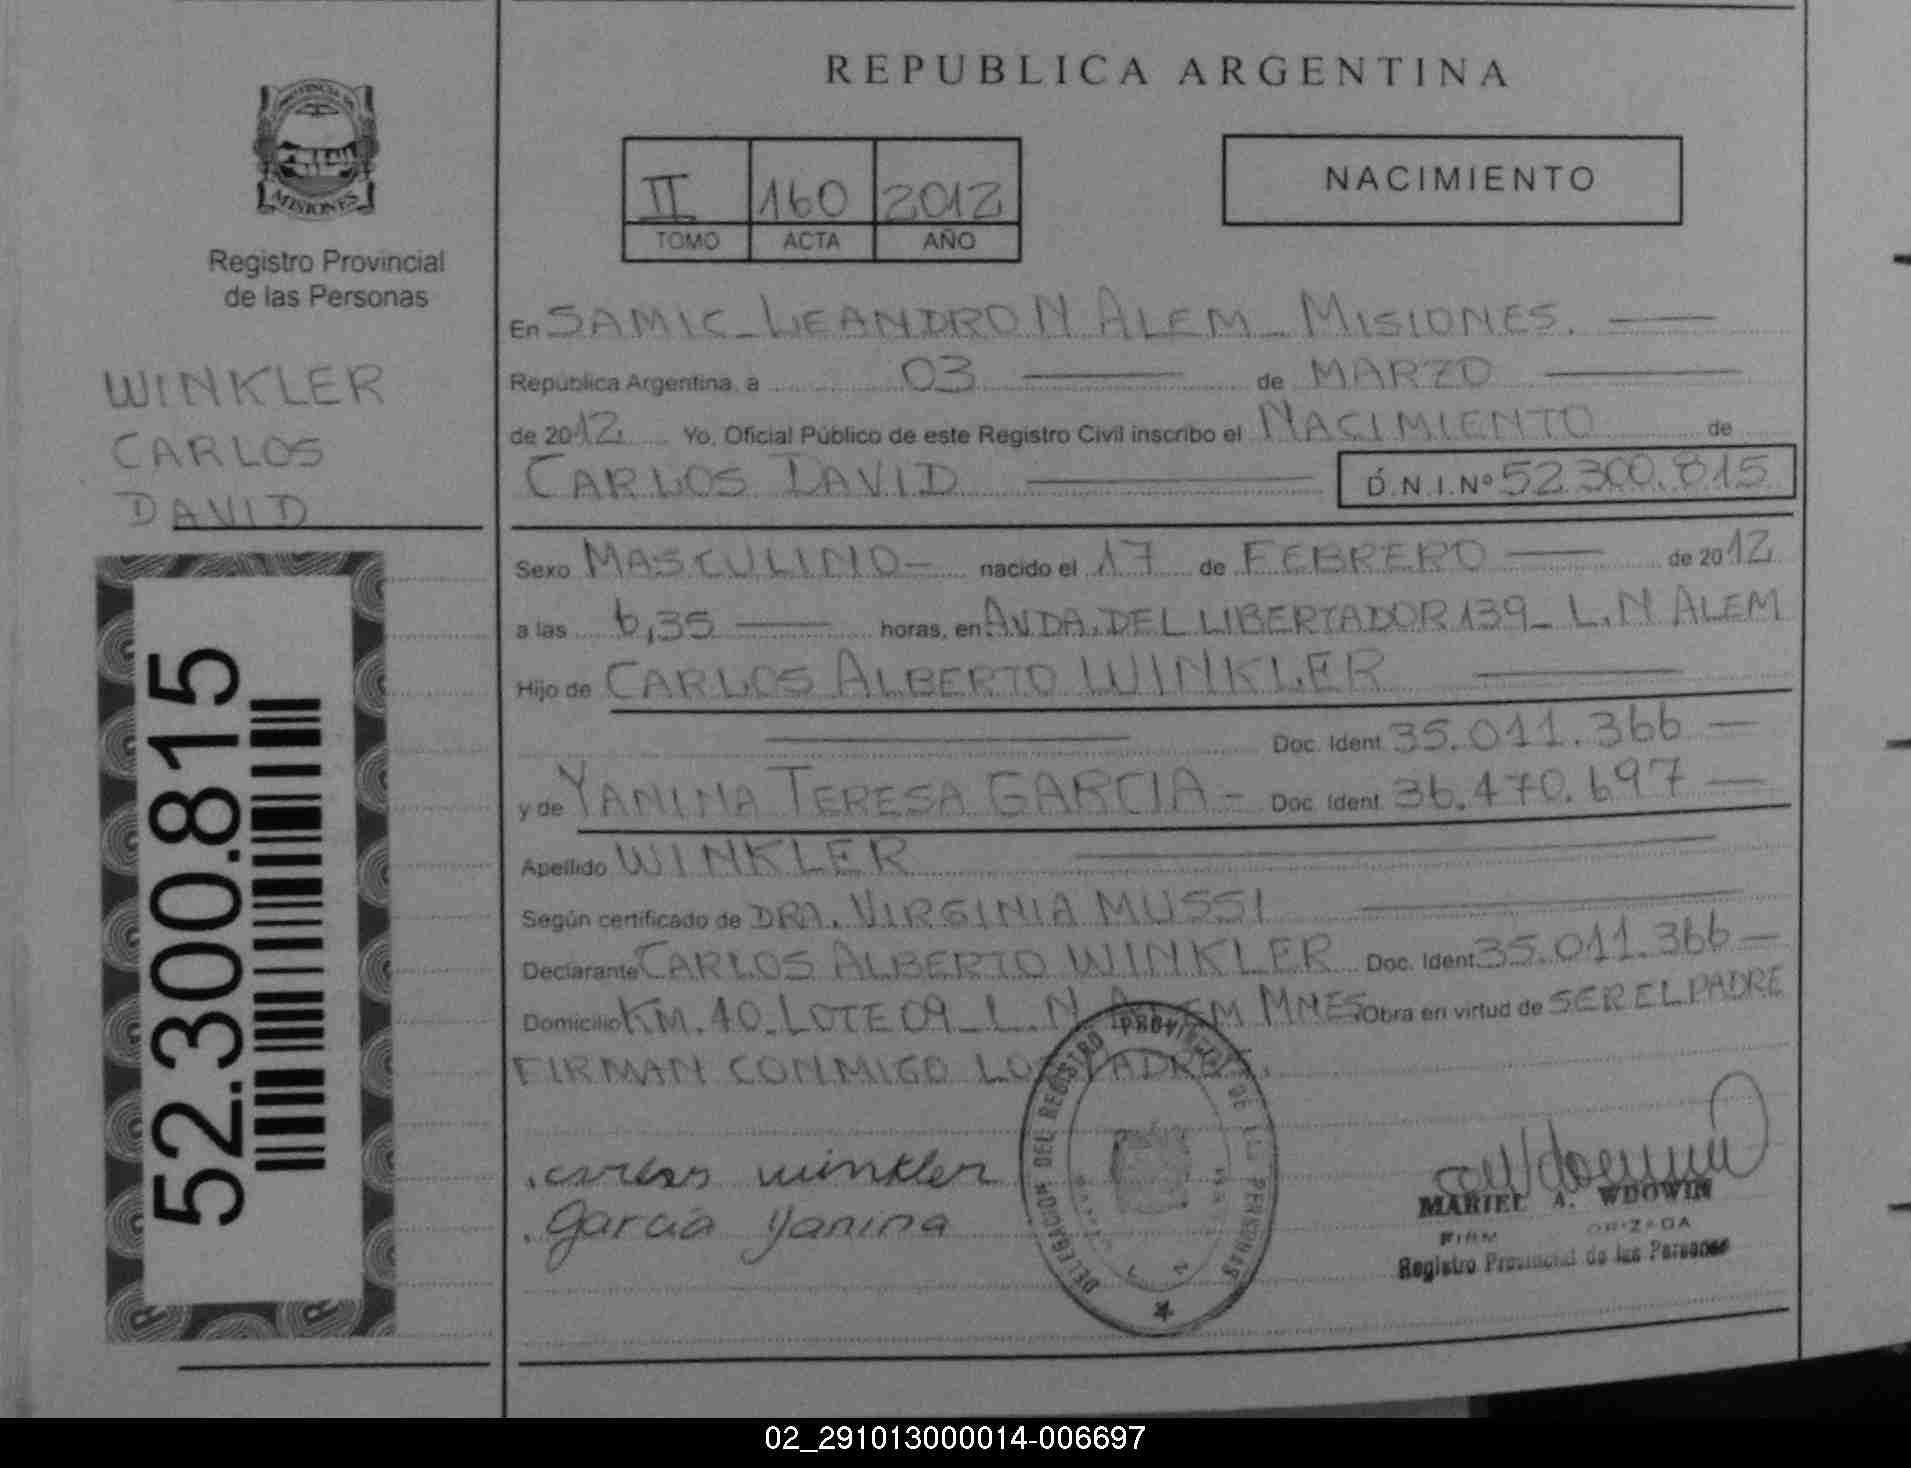 REPUBLICA ARGENTINA
PROVINCIA DE
MISIONES
Registro Provincial
de las Personas
II 160 2012
TOMO ACTA AÑO
NACIMIENTO
WINKLER
CARLOS
DAVID
52.300.815
En SAMIC - LEANDRO N ALEM - MISIONES.
República Argentina, a 03 de MARZO
de 2012 Yo, Oficial Público de este Registro Civil inscribo el NACIMIENTO de
CARLOS DAVID D.N.I.Nº 52.300.815
Sexo MASCULINO - nacido el 17 de FEBRERO de 2012
a las 6,35 horas, en AVDA. DEL LIBERTADOR 139 - L. N ALEM
Hijo de CARLOS ALBERTO WINKLER
Doc. Ident 35.011.366
y de YANINA TERESA GARCIA - Doc. Ident 36.470.697
Apellido WINKLER
Según certificado de DRA. VIRGINIA MUSSI
Declarante CARLOS ALBERTO WINKLER Doc. Ident 35.011.366
Domicilio KM. 10 - LOTE 09 - L. N ALEM MNES Obra en virtud de SER EL PADRE
FIRMAN CONMIGO LOS PADRES.
carlos winkler
Garcia Yanina
DELEGACION DEL REGISTRO PROVINCIAL DE LAS PERSONAS
MARIEL A. WDOWIN
Registro Provincial de las Personas
02_291013000014-006697